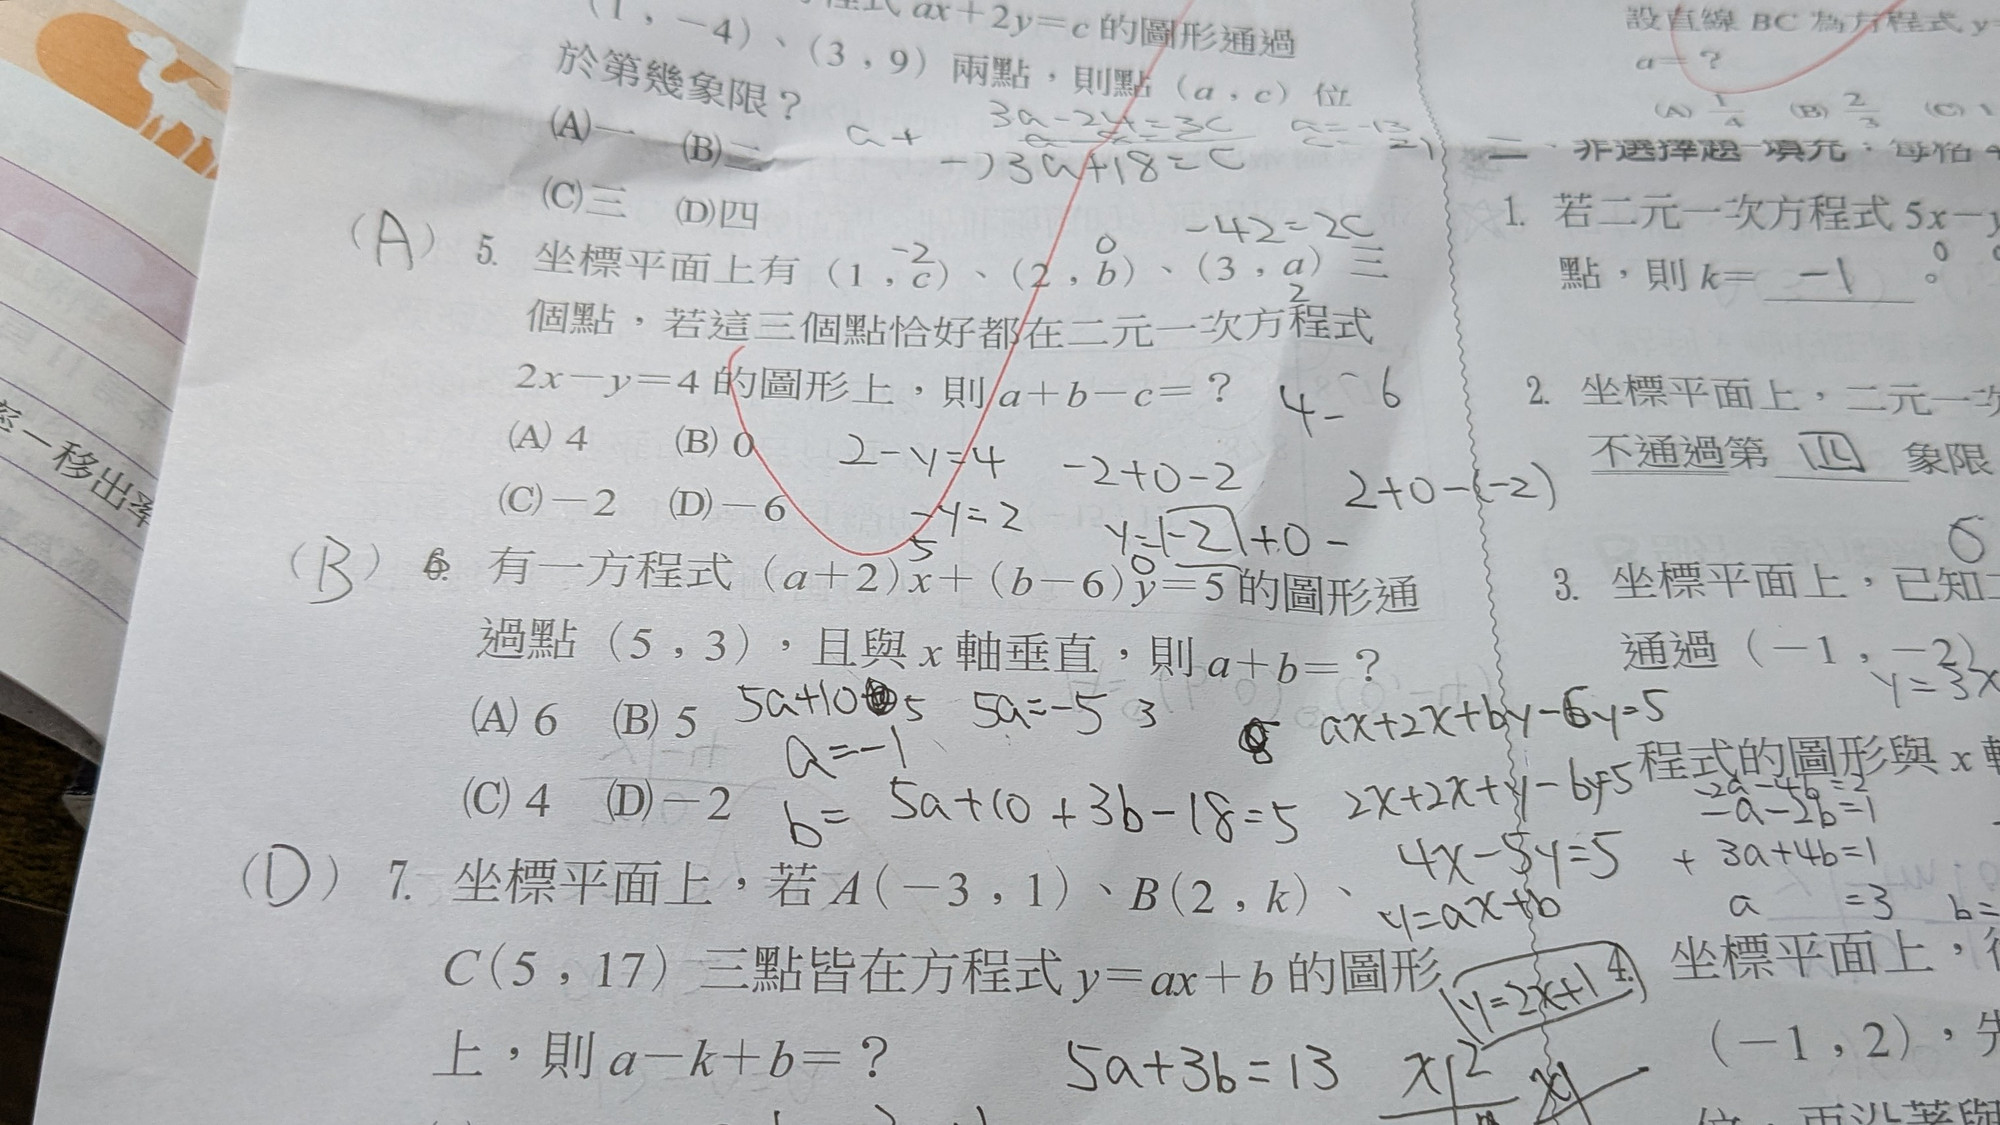 程式 ax+2y=c 的圖形通過
(1,-4)、(3,9)兩點,則點(a,c)位
於第幾象限?
(A)一 (B)二
(C)三 (D)四
a+
3a-24=3c
-)3a+18=c
-42=2c
(A) 5. 坐標平面上有(1,c)、(2,b)、(3,a)三
-2 0 2
個點,若這三個點恰好都在二元一次方程式
2x-y=4 的圖形上,則 a+b-c=?
(A) 4 (B) 0
(C)-2 (D)-6
2-y=4
-y=2
-2+0-2
y=-2+0-
4- -6
2+0-(-2)
(B) 6. 有一方程式(a+2)x+(b-6)y=5 的圖形通
5 0
過點(5,3),且與 x 軸垂直,則 a+b=?
(A) 6 (B) 5
(C) 4 (D)-2
5a+10 5 5a=-5 3
a=-1
b= 5a+10+3b-18=5
ax+2x+by-6y=5
2x+2x+y-6y=5
4x-5y=5
y=ax+b
y=2x+1
(D) 7. 坐標平面上,若 A(-3,1)、B(2,k)、
C(5,17)三點皆在方程式 y=ax+b 的圖形
上,則 a-k+b=?
5a+3b=13
x 2
設直線 BC 為方程式 y=
a=?
(A) 1/4 (B) 2/3 (C)
二、非選擇題
1. 若二元一次方程式 5x-y
點,則 k= -1 。
2. 坐標平面上,二元一次
不通過第 四 象限
3. 坐標平面上,已知二
通過(-1,-2)
y=3x
程式的圖形與 x 軸
-2a-4b=2
-a-2b=1
+ 3a+4b=1
a =3 b=
4. 坐標平面上,
(-1,2),先